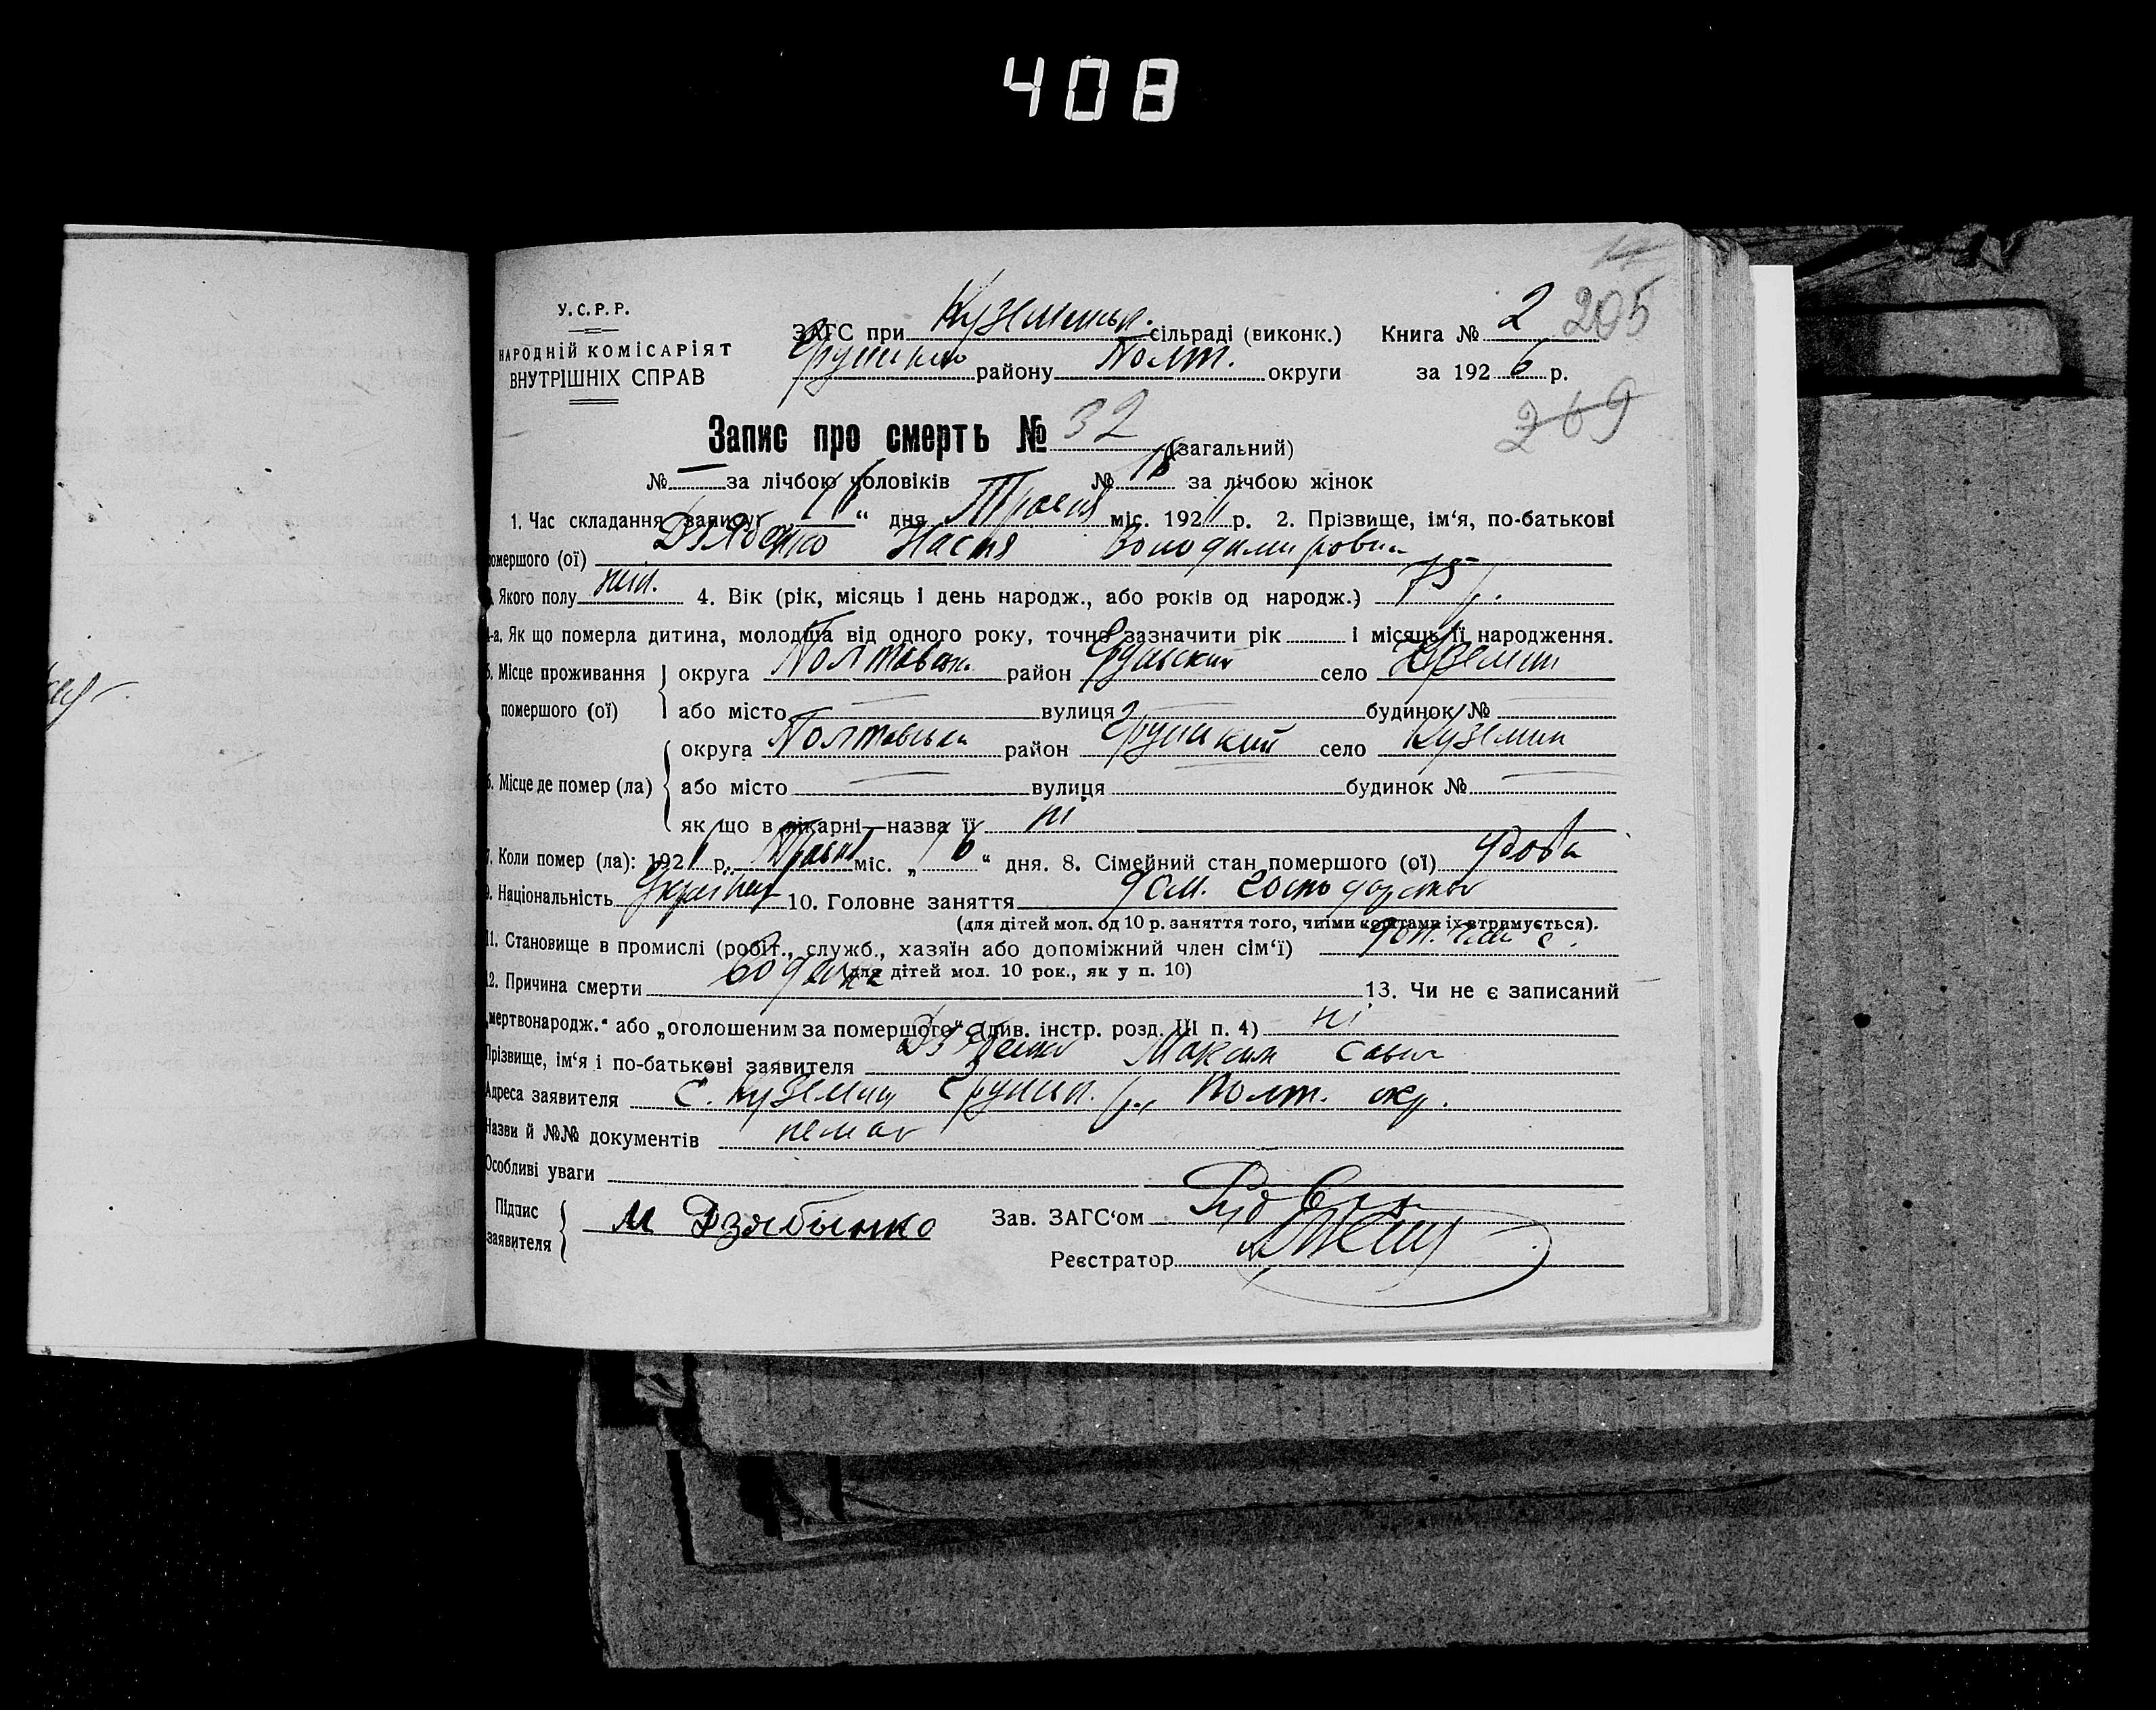 408
205
У.С.Р.Р.
НАРОДНІЙ КОМІСАРІЯТ
ВНУТРІШНІХ СПРАВ
ЗАГС при Куземськ. сільраді (виконк.) Книга № 2
району Полт. округи за 1926 р.
269
Запис про смерть № 32 (загальний)
№ — за лічбою чоловіків № за лічбою жінок
1. Час складання запису: „16“ дня Травня міс. 192 р. 2. Прізвище, ім‘я, по-батькові
помершого (ої) Дзябенко Настя Володимировна
Якого полу жін. 4. Вік (рік, місяць і день народж., або років од народж.) 75 р.
4-а. Як що померла дитина, молодша від одного року, точно зазначити рік і місяць її народження.
5. Місце проживання округа Полтавськ. район село Куземин
помершого (ої) або місто — вулиця — будинок № —
округа Полтавська район Грунський село Куземин
6. Місце де помер (ла) або місто — вулиця — будинок № —
як що в лікарні—назва її ні
7. Коли помер (ла): 192 р. Травня міс. „16“ дня. 8. Сімейний стан помершого (ої) удова
9. Національність 10. Головне заняття дом. господарство
(для дітей мол. од 10 р. заняття того, чиїми коштами їх втримується).
11. Становище в промислі (робіт., служб., хазяїн або допоміжний член сім‘ї) доп. член с.
(для дітей мол. 10 рок., як у п. 10)
12. Причина смерти 13. Чи не є записаний
„мертвонародж.“ або „оголошеним за помершого“ (див. інстр. розд. III п. 4) ні
Прізвище, ім‘я і по-батькові заявителя Дзябенко Максим Савич
Адреса заявителя с. Куземин, Грунськ. р., Полт. окр.
Назви й №№ документів немає
Особливі уваги
Підпис
заявителя М Дзябенко Зав. ЗАГС‘ом
Реєстратор